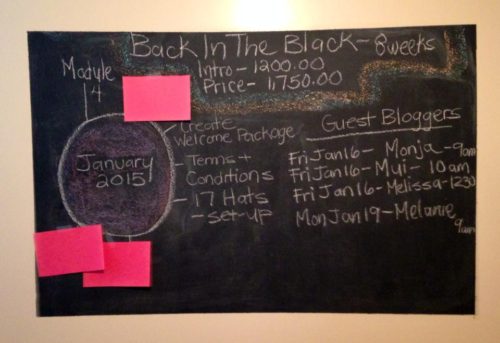 Back In The Black - 8 weeks
Intro - 1200.00
Price - 1,750.00
Module
4
January
2015
Create
Welcome Package
- Terms +
Conditions
- 17 Hats
- set-up
Guest Bloggers
Fri Jan 16 - Monja - 9am
Fri Jan 16 - Mui - 10am
Fri Jan 16 - Melissa - 1230
Mon Jan 19 - Melanie
9am